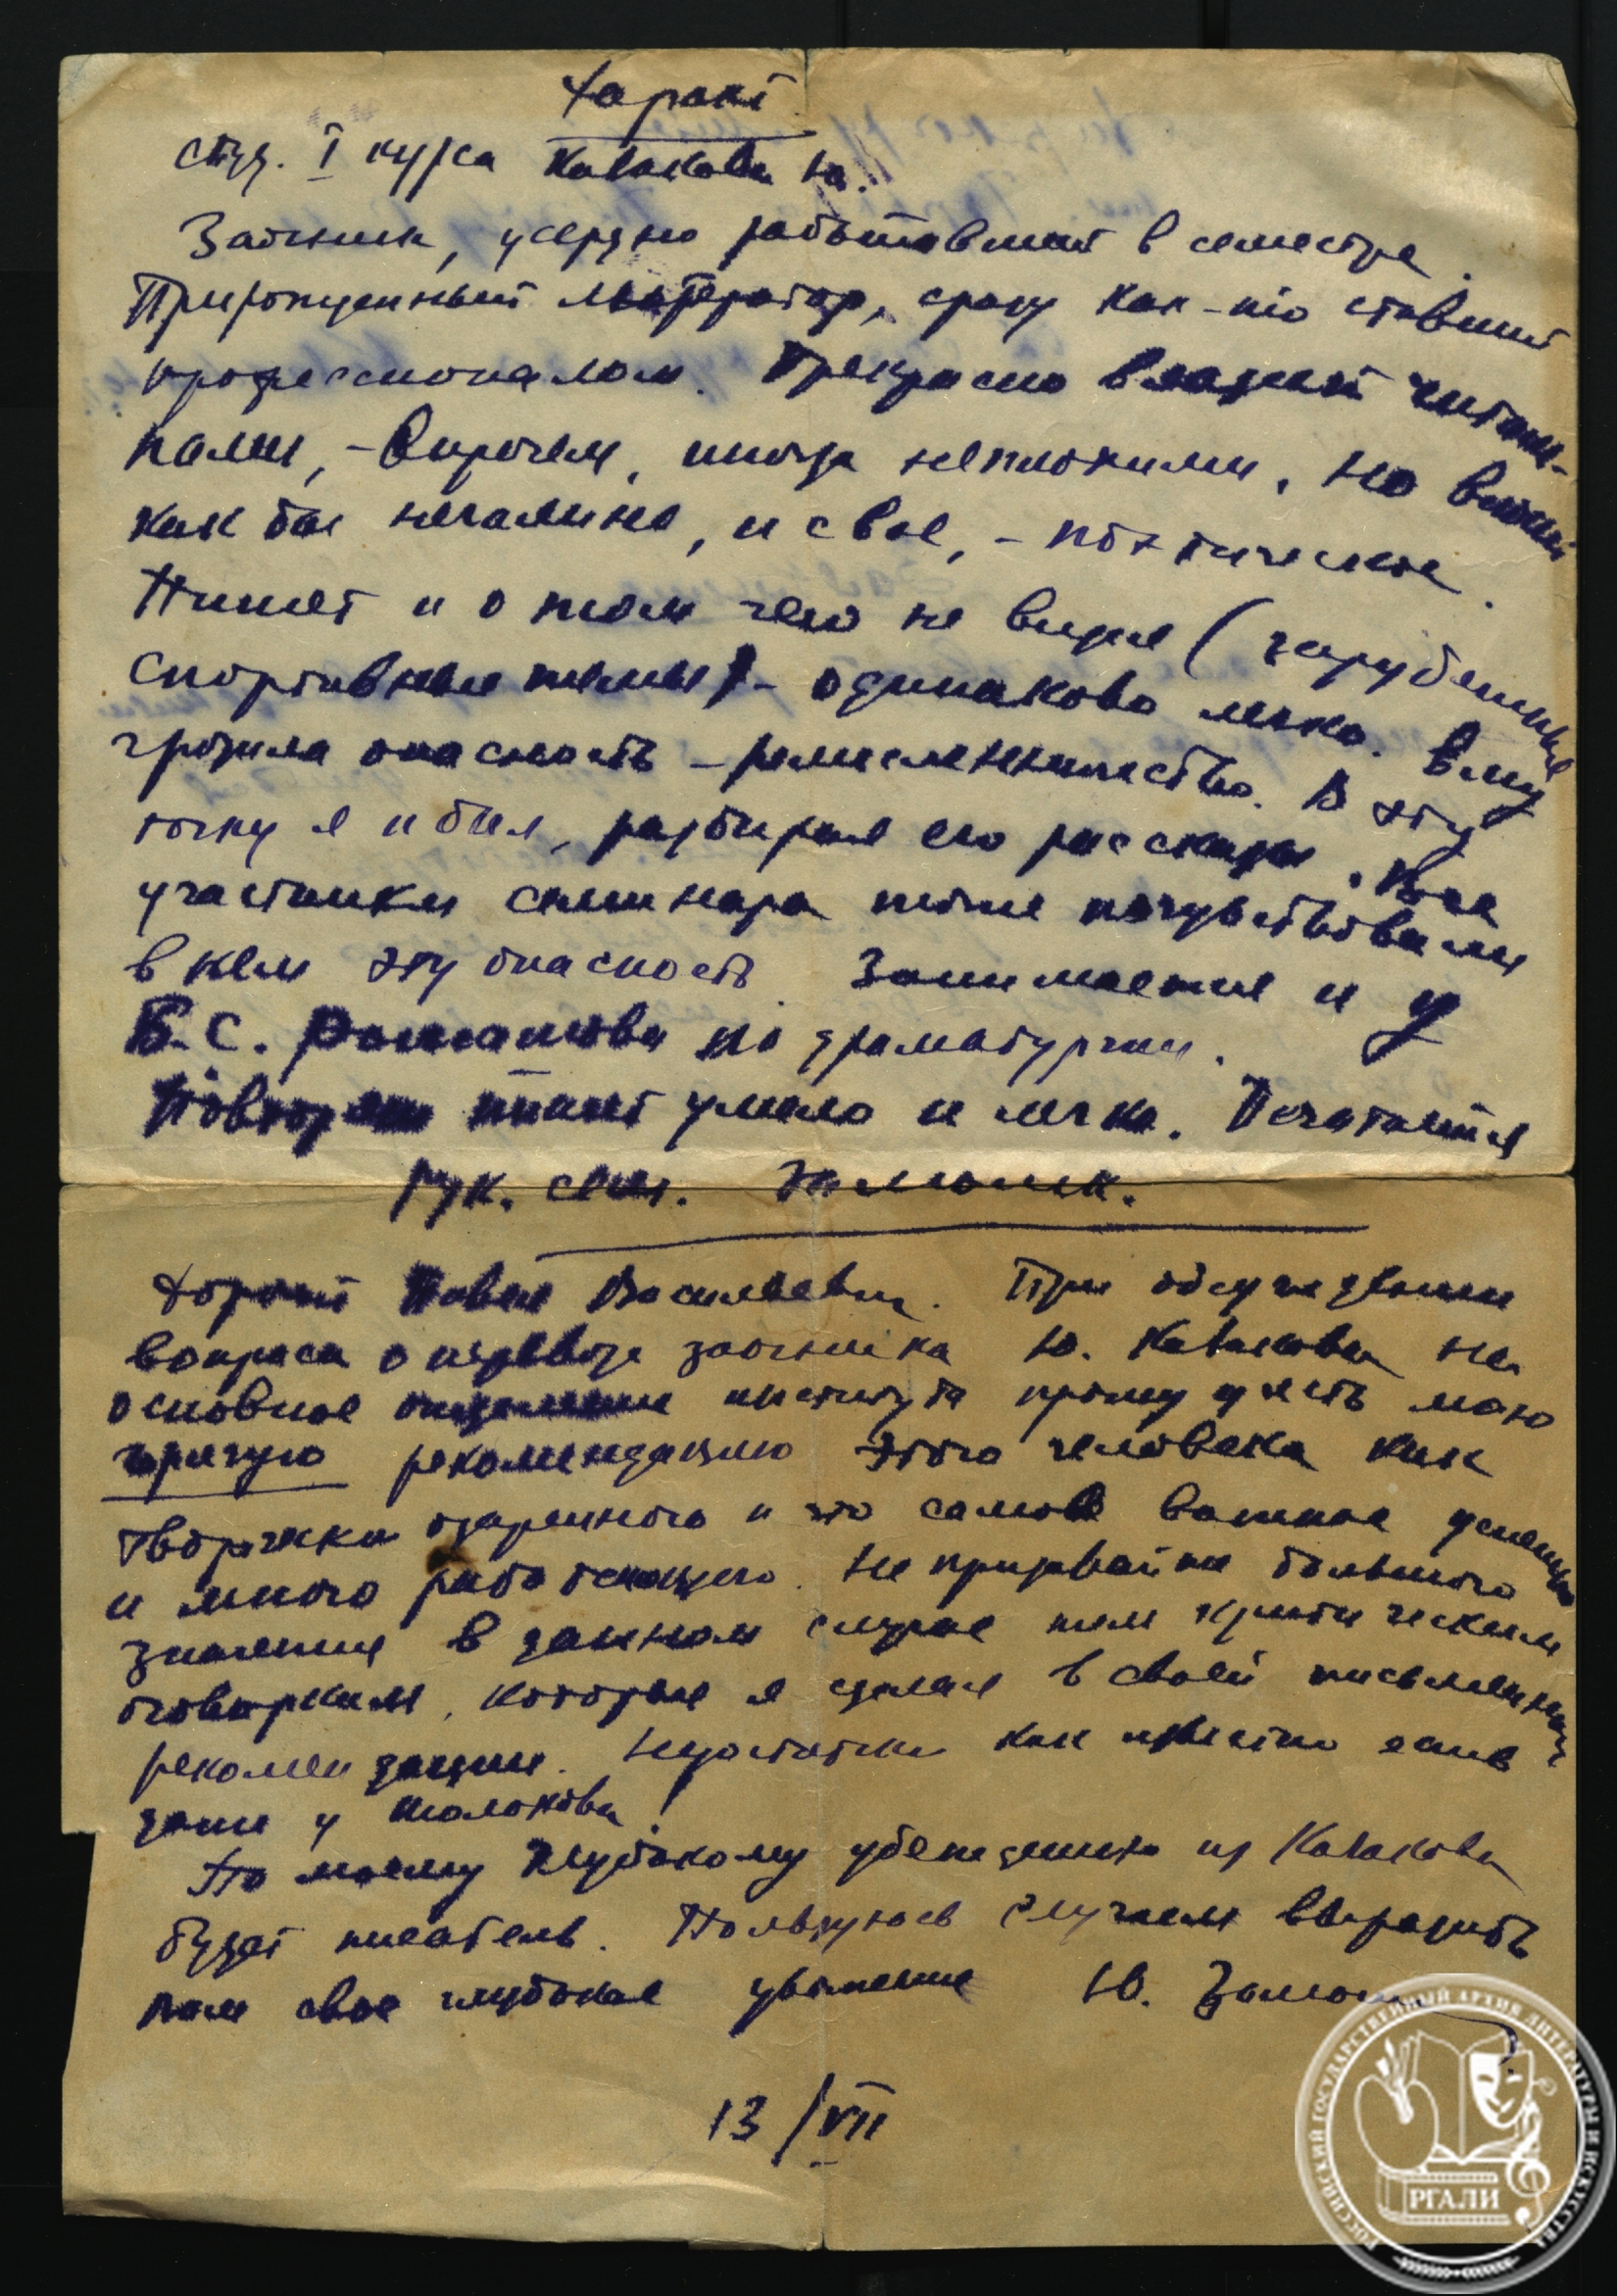 Характ.
студ. I курса Казакова Ю.
Заочник, усердно работавший в семестре.
Прирожденный литератор, сразу как-то ставший
профессионалом. Прекрасно владеет
, - впрочем, иногда неплохими, но
как бы нечаянно, и свое, - поэтическое.
Пишет и о том чего не видел (зарубежные
спортивные темы) - одинаково легко. Ему
грозила опасность - ремесленничество. В эту
точку я и бил, разбирая его рассказы. Все
участники семинара тоже почувствовали
в нем эту опасность. Занимается и у
Б.С. Ромашова по драматургии.
Повторяю пишет умело и легко. Печатается
рук. сем. Замошк.
Дорогой Павел Васильевич. При обсуждении
вопроса о переводе заочника Ю. Казакова на
основное отделение института прошу учесть мою
горячую рекомендацию этого человека как
творчески одаренного и что самое важное успешно
и много работающего. Не придавайте большого
значения в данном случае тем критическим
оговоркам, которые я сделал в своей письменной
рекомендации. Недостатки как известно есть в
даже у Шолохова!
По моему глубокому убеждению из Казакова
будет писатель. Пользуюсь случаем выразить
Вам свое глубокое уважение Ю. Замош
13/VII
РОССИЙСКИЙ ГОСУДАРСТВЕННЫЙ АРХИВ ЛИТЕРАТУРЫ И ИСКУССТВА
РГАЛИ